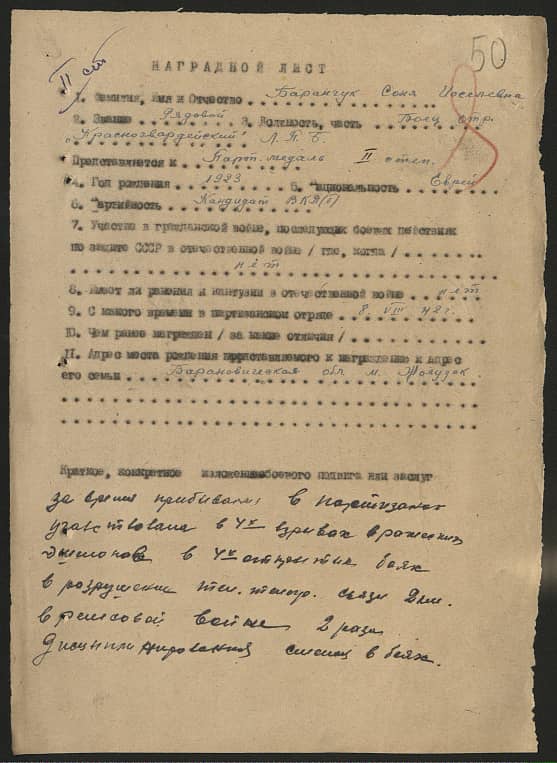 50
II ст
НАГРАДНОЙ ЛИСТ
1. Фамилия, Имя и Отчество Баранчук Соня Иоселевна
2. Звание Рядовой 3. Должность, часть Боец отр.
"Красногвардейский" Л.П.Б.
Представляется к Парт. медаль II степ.
4. Год рождения 1923 5. Национальность Еврей
6. Партийность Кандидат ВКП(б)
7. Участие в гражданской войне, последующих боевых действиях
по защите СССР в отечественной войне / где, когда /
нет
8. Имеет ли ранения и контузии в отечественной войне нет
9. С какого времени в партизанском отряде 8 VIII 42 г.
10. Чем ранее награжден / за какие отличия /
11. Адрес места рождения представляемого к награждению и адрес
его семьи Барановическая обл м. Жолудок
Краткое, конкретное изложение боевого подвига или заслуг
за время в партизанах
участвовала в 4х взривах вражеских
эшелонов в 4х открытых боях
в разрушении тел. телегр. связи
в рельсовой войне 2 раза
Дисциплинированная смелая в боях.